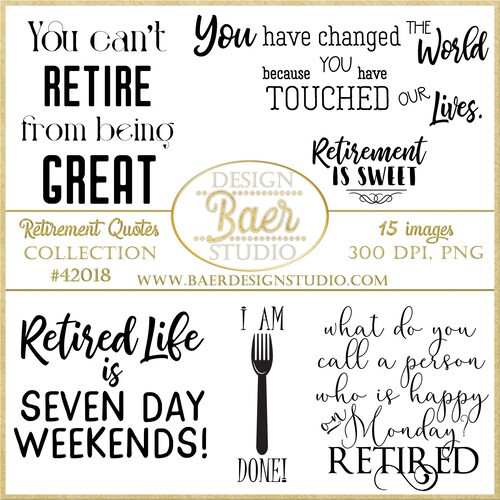 You can't
RETIRE
from being
GREAT
You have changed THE World
because YOU have
TOUCHED OUR Lives.
Retirement
IS SWEET
Retirement Quotes
COLLECTION
#42018
DESIGN
Baer
STUDIO
15 images
300 DPI, PNG
WWW.BAERDESIGNSTUDIO.COM
Retired Life
is
SEVEN DAY
WEEKENDS!
I AM
DONE!
what do you
call a person
who is happy
on Monday?
RETIRED